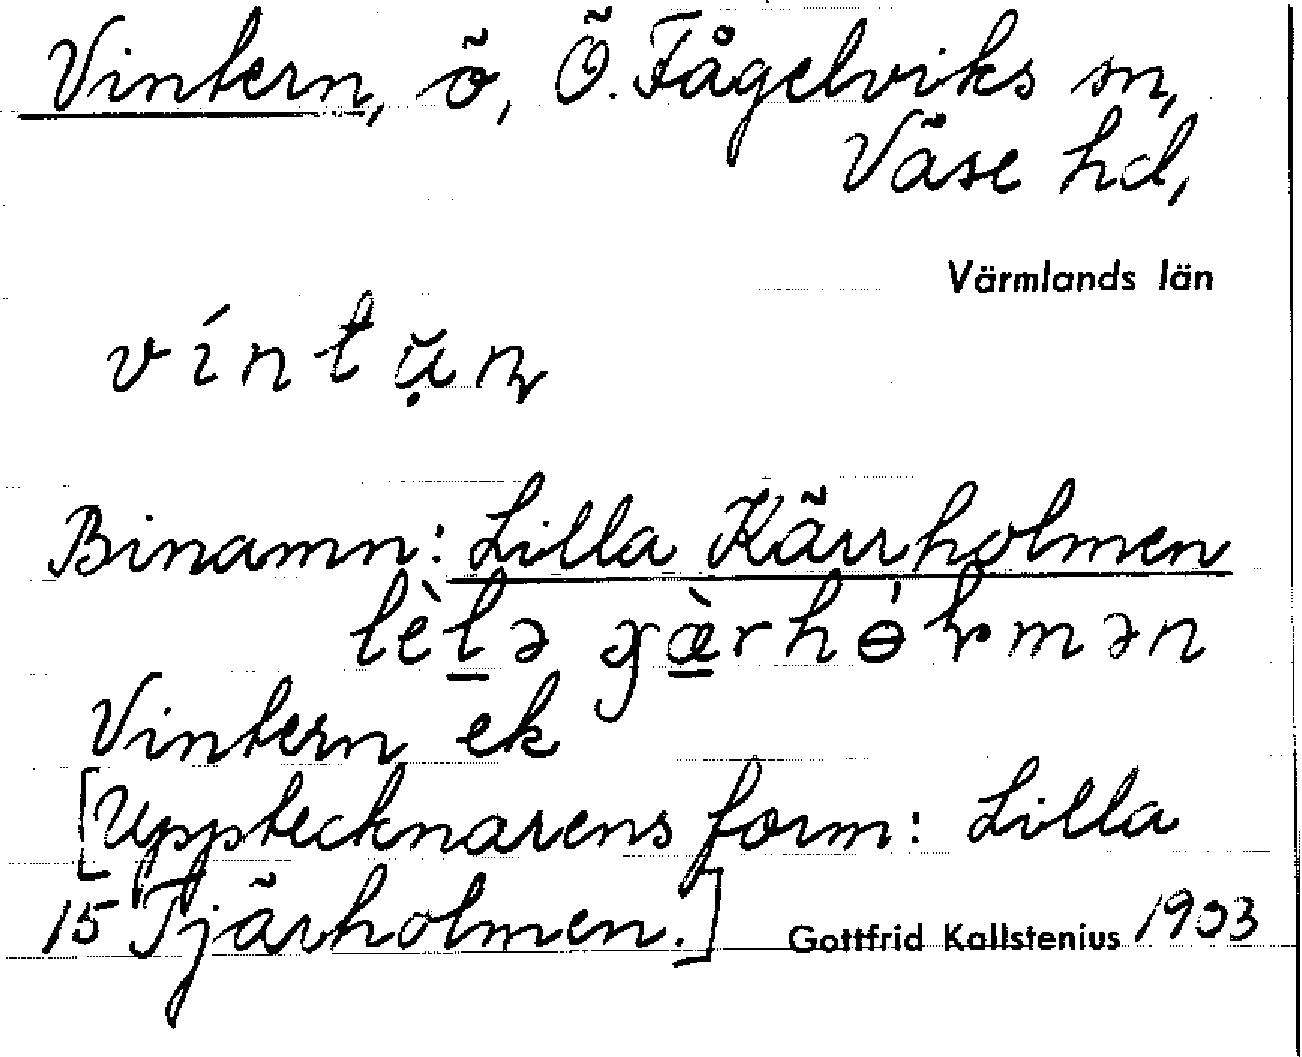 Vintern, ö, Ö. Fågelviks sn,
Väse hd,
Värmlands län
víntạ̈n
Binamn: Lilla Kärrholmen
lèlə gæ̀rhɵ́lmən
Vintern ek
[Upptecknarens form: Lilla
15 Tjärholmen.] Gottfrid Kallstenius 1903